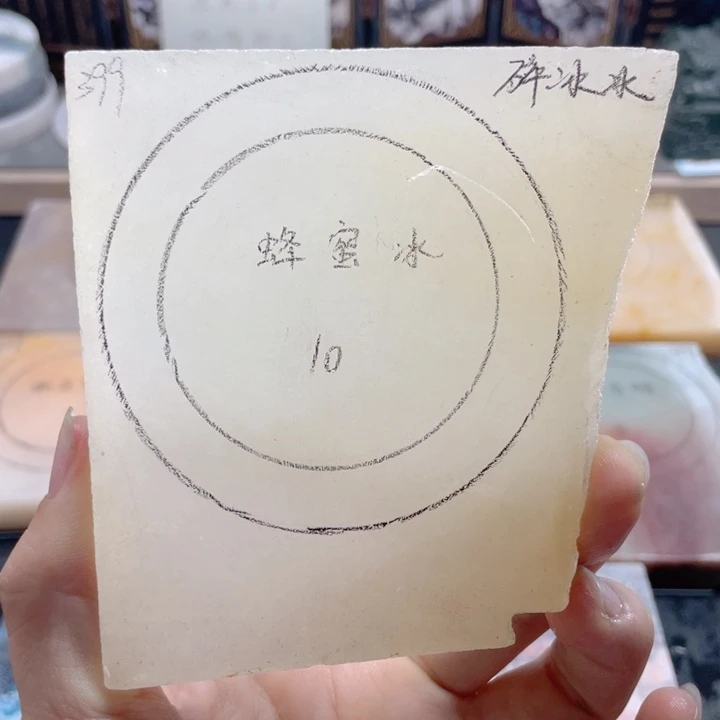 399
碎冰冰
蜂蜜冰
10